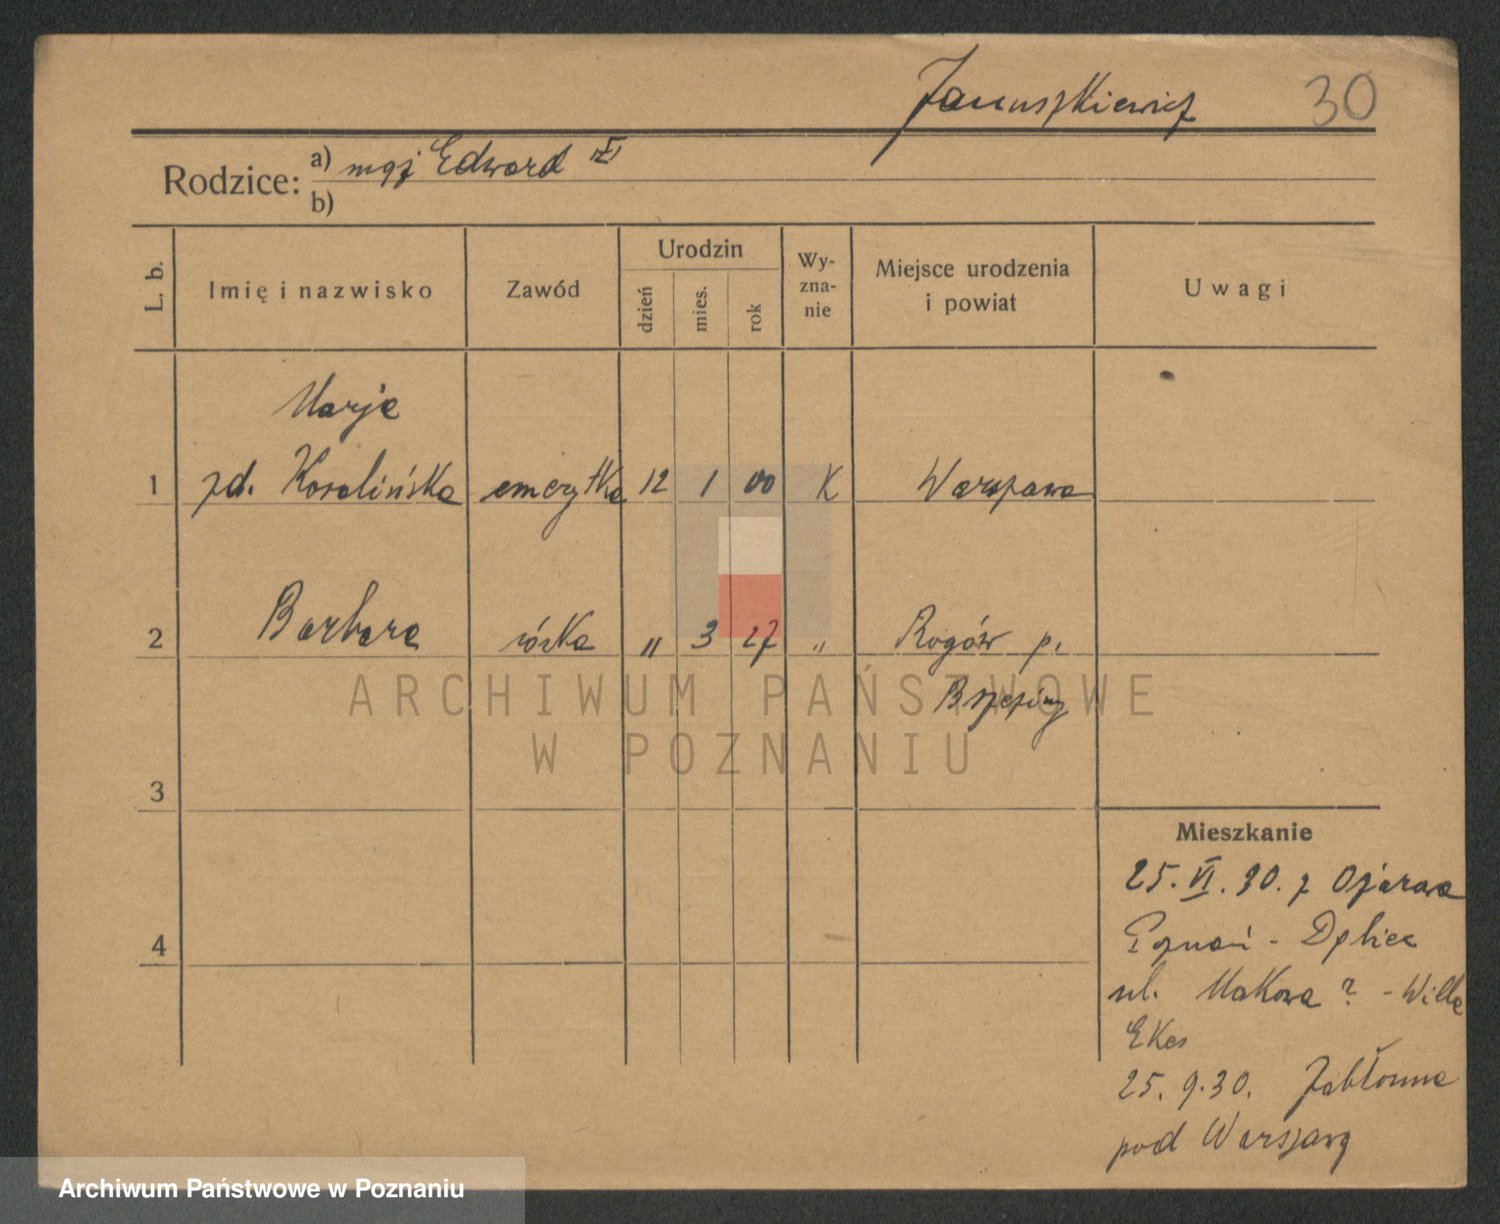 Januszkiewicz 30
Rodzice: a) mąż Edward
b)
L. b. Imię i nazwisko Zawód Urodzin dzień mies. rok Wy-zna-nie Miejsce urodzenia i powiat Uwagi
Marja
1 zd. Koralińska emerytka 12 1 00 K Warszawa
2 Barbara córka " 3 27 " Rogów p.
Brzeziny
ARCHIWUM PAŃSTWOWE
W POZNANIU
3
Mieszkanie
25.VI.30. z Ożarowa
4 Poznań - Dębiec
ul. Makowa ? - Willa
25.9.30. Jabłonna
pod Warszawą
Archiwum Państwowe w Poznaniu